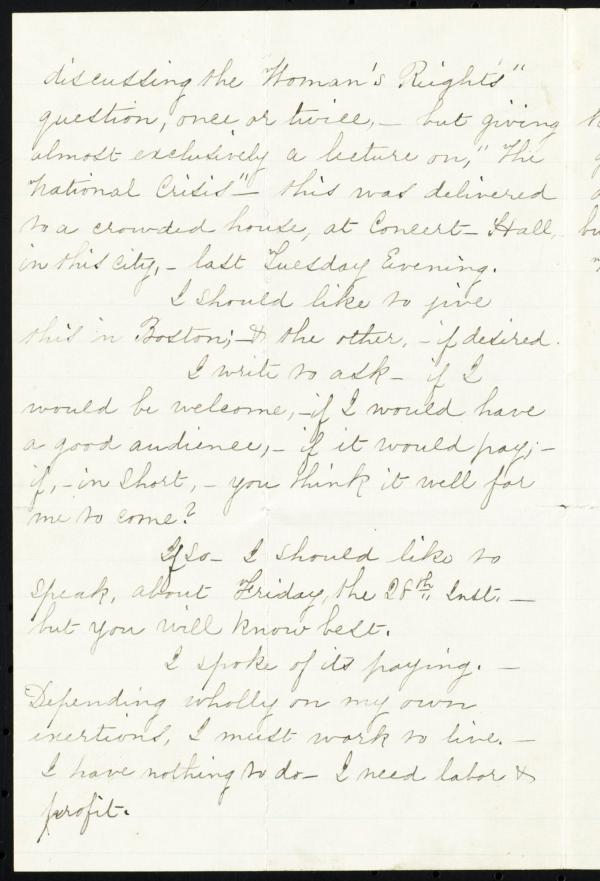 discussing the "Woman's Rights"
question, once or twice, – but giving
almost exclusively a lecture on, "The
National Crisis" – this was delivered
to a crowded house, at Concert – Hall,
in this city, – last Tuesday Evening.
I should like to give
this in Boston; – & the other, – if desired.
I write to ask – if I
would be welcome, – if I would have
a good audience, – if it would pay; –
if, – in short, – you think it well for
me to come?
If so – I should like to
speak, about Friday, the 28th. Inst. –
but you will know best.
I spoke of its paying. –
Depending wholly on my own
exertions, I must work to live. –
I have nothing to do – I need labor &
profit.